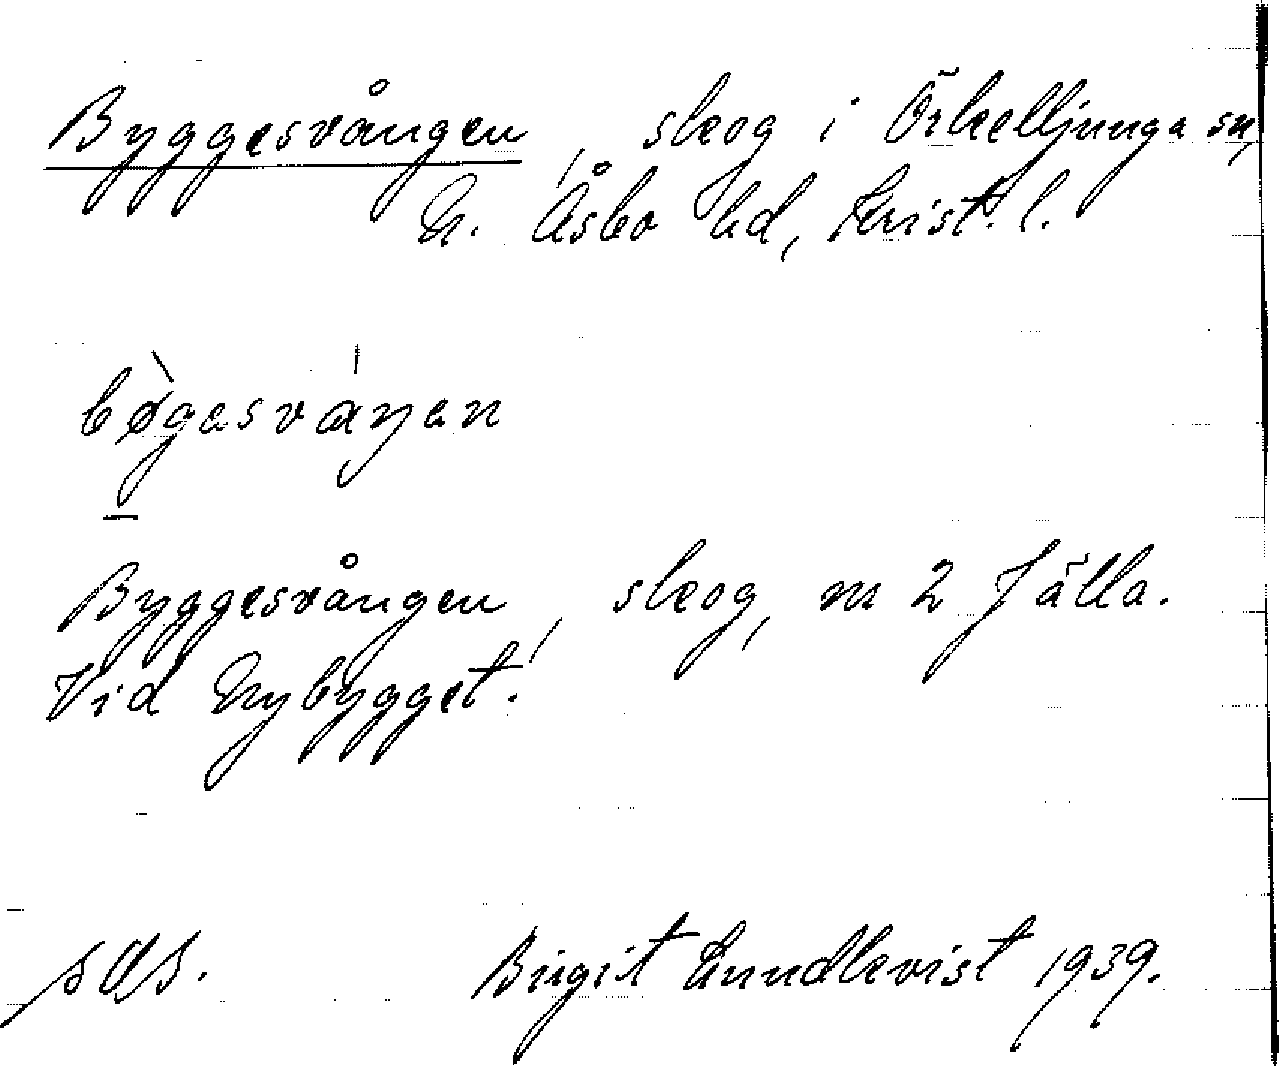 Byggesvången, skog i Örkelljunga sn,
N. Åsbo hd, Krist. l.
bø̀gesváŋen
Byggesvången, skog, m 2 Fälla.
Vid Nybygget.
SOS. Birgit Lundkvist 1939.